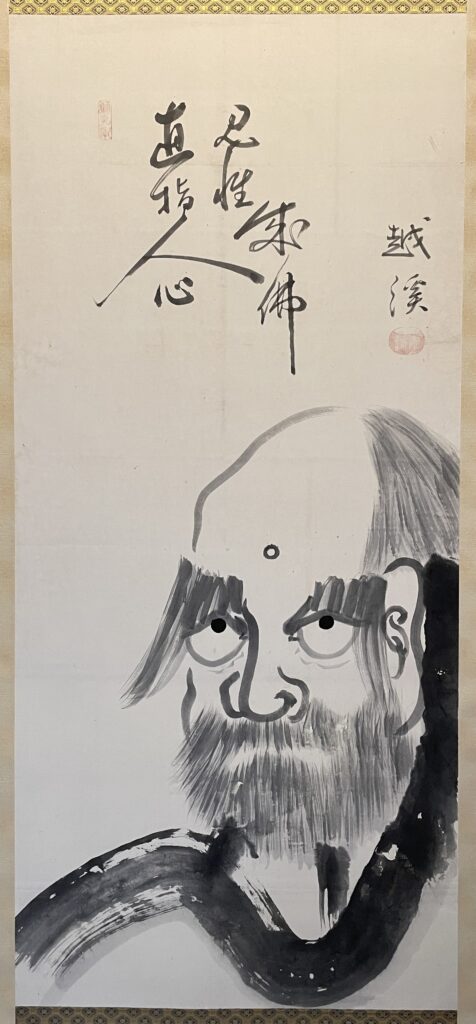 直指人心
見性成佛
越溪